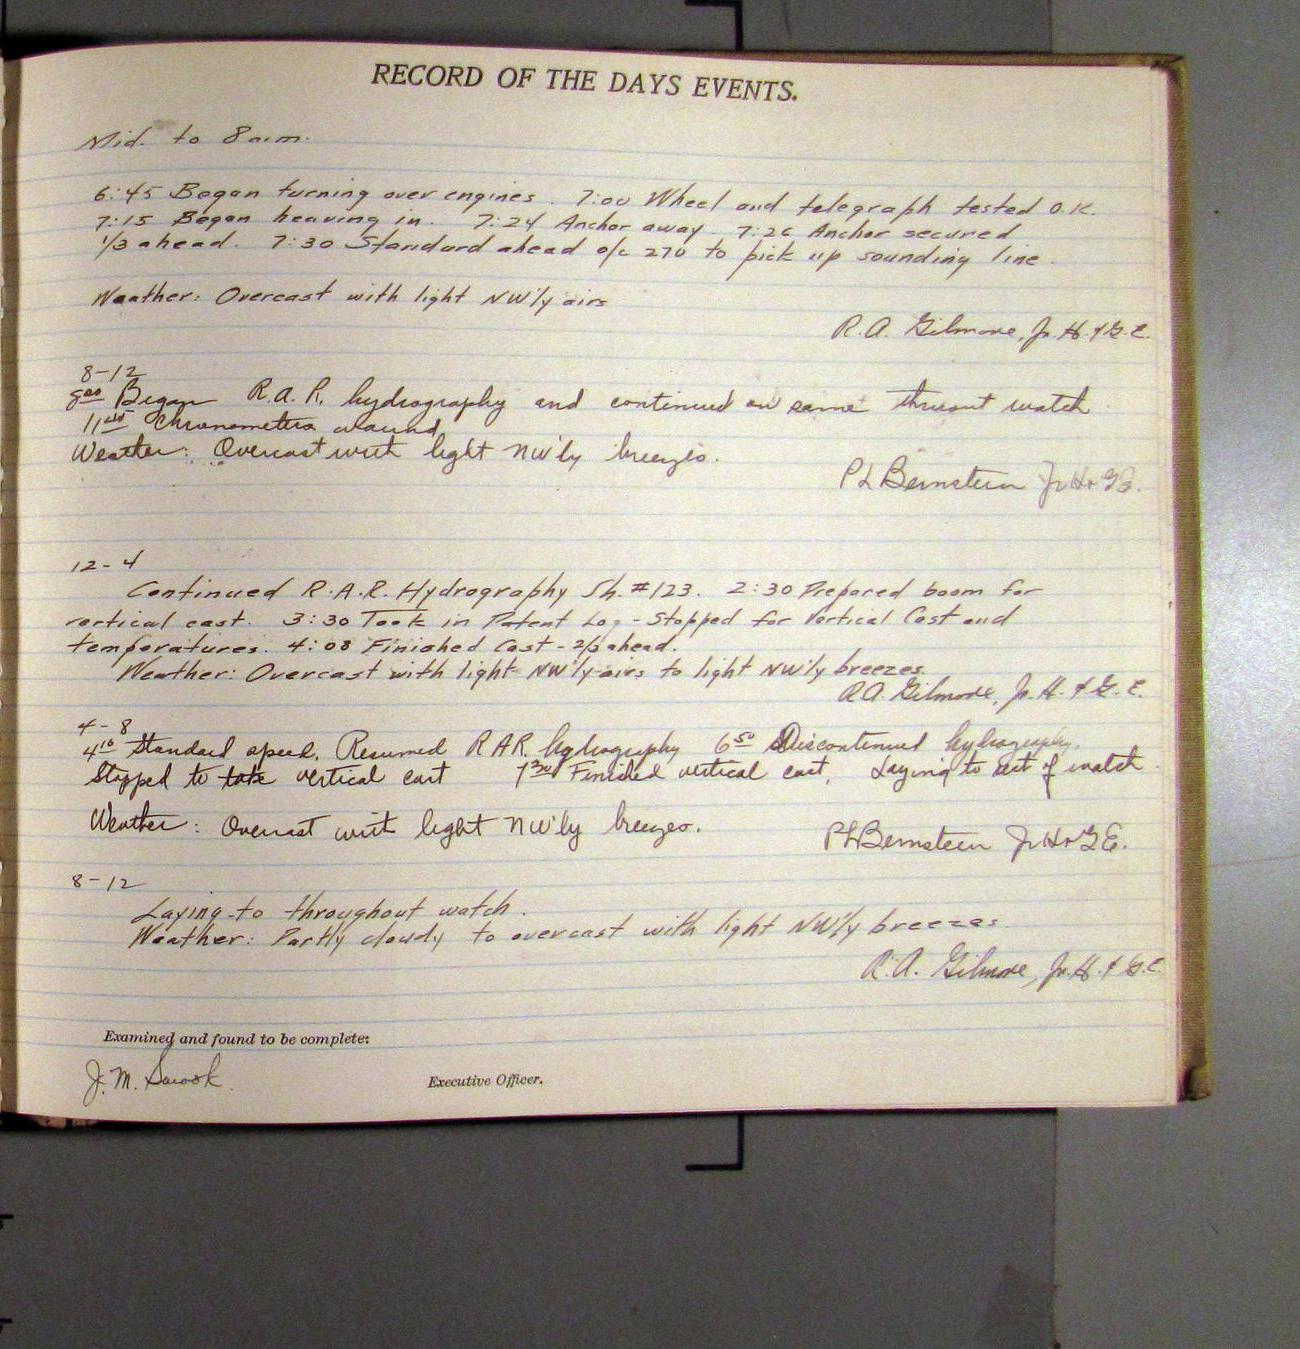 RECORD OF THE DAYS EVENTS.
Mid. to 8 a.m.
6:45 Began turning over engines. 7:00 Wheel and telegraph tested O.K.
7:15 Began heaving in. 7:24 Anchor away 7:26 Anchor secured
1/3 ahead. 7:30 Standard ahead o/c 270 to pick up sounding line.
Weather: Overcast with light NW'ly airs
R.A. Gilmore, Jr. H. & G. E.
8-12
8⁰⁰ Began R.A.R. hydrography and continued on same thruout watch
11⁴⁵ Chronometers wound
Weather: Overcast with light NW'ly breezes.
P L Bernstein Jr H & G E.
12-4
Continued R.A.R. Hydrography Sh. #123. 2:30 Prepared boom for
vertical cast. 3:30 Took in Patent Log - Stopped for Vertical Cast and
temperatures. 4:08 Finished Cast - 2/3 ahead.
Weather: Overcast with light NW'ly airs to light NW'ly breezes.
R.A. Gilmore, Jr. H. & G. E.
4-8
4¹⁰ Standard speed. Resumed RAR hydrography 6⁵⁰ Discontinued hydrography.
Stopped to take vertical cast 7³⁰ Finished vertical cast. Laying to rest of watch
Weather: Overcast with light NW'ly breezes.
P L Bernstein Jr H & G E.
8-12
Laying-to throughout watch.
Weather: Partly cloudy to overcast with light NW'ly breezes.
R.A. Gilmore, Jr. H. & G. E.
Examined and found to be complete:
J. M.
Executive Officer.